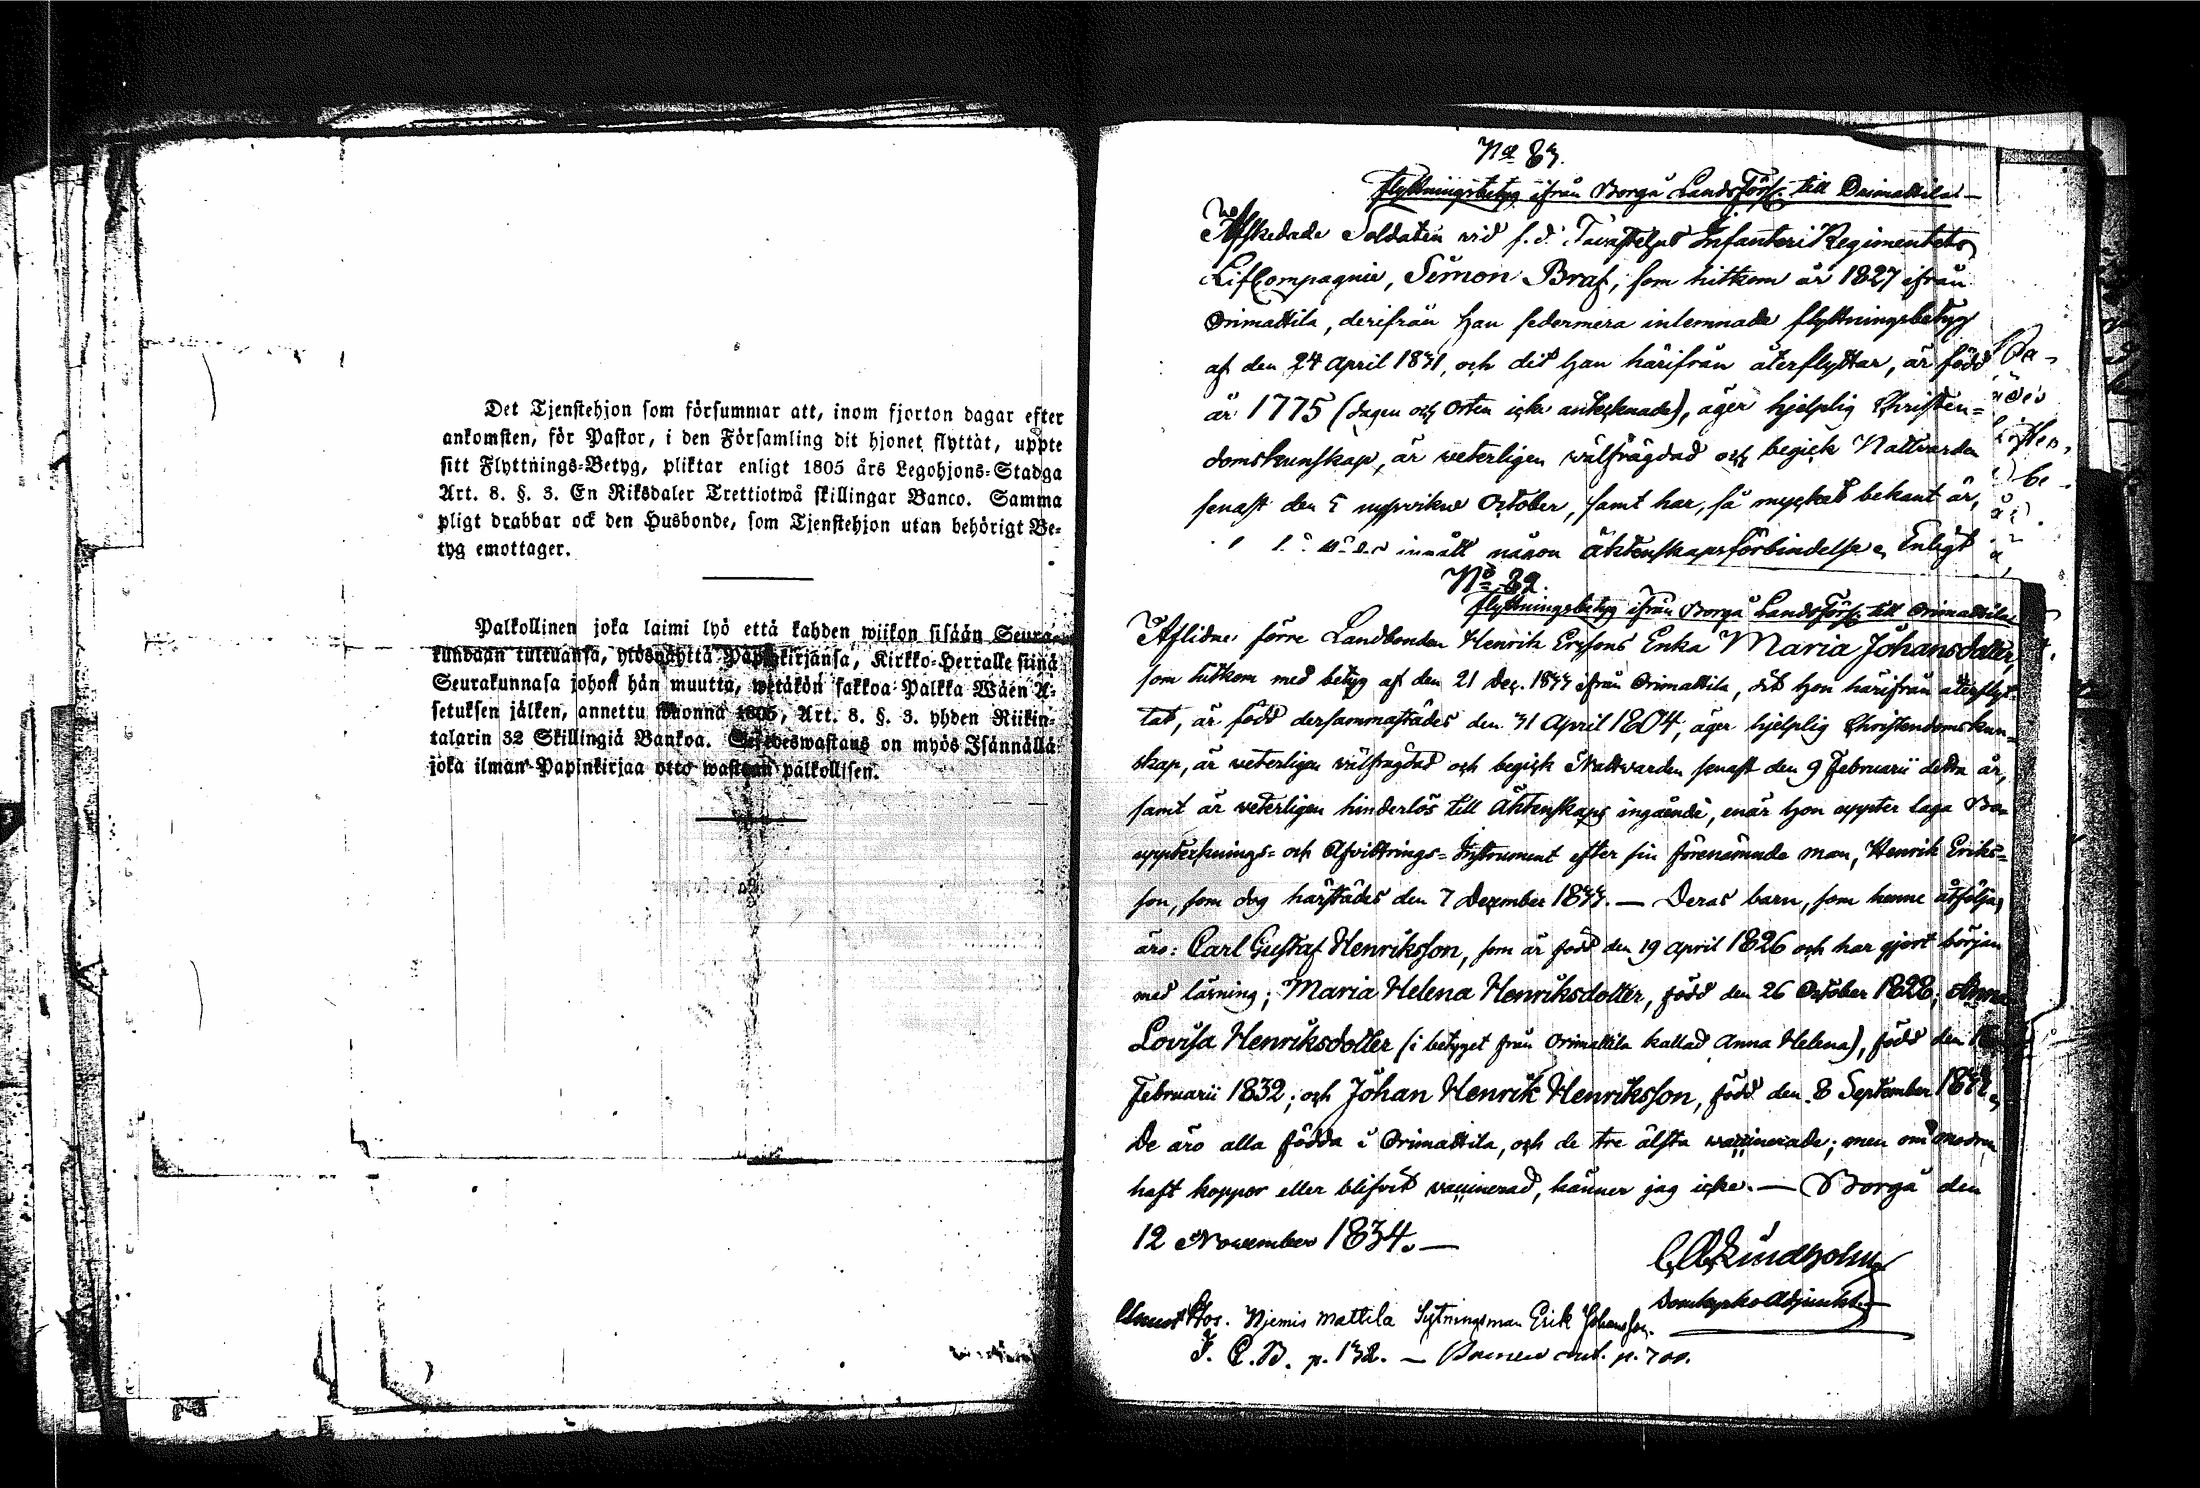 Det Tjenstehjon som försummar att, inom fjorton dagar efter
ankomsten, för Pastor, i den Församling dit hjonet flyttat, uppte
sitt Flyttnings-Betyg, pliktar enligt 1805 års Legohjons-Stadga
Art. 8. §. 3. En Riksdaler Trettiotwå skillingar Banco. Samma
pligt drabbar ock den Husbonde, som Tjenstehjon utan behörigt Be-
tyg emottager.
Palkollinen joka laimi lyö että kahden wiikon sisään Seura-
kundaan tultuansa, ylösnäyttä Papinkirjansa, Kirkko-Herralle siinä
Seurakunnasa johon hän muutta, wetäkön sakkoa Palkka Wäen A-
setuksen jälken, annettu wuonna 1805, Art. 8. §. 3. yhden Riikin-
talarin 32 Skillingiä Bankoa. on myös Isännällä
joka ilman Papinkirjaa otto wastaan palkollisen.
Flyttningsbetyg ifrån Borgå Landsförs. till Orimattila.—
Afskedade Soldaten vid f.d. Tavastehus Infanteri Regimentets
LifCompagnie, Simon Braf, som hitkom år 1827 ifrån
Orimattila, derifrån han sedermera inlemnade flyttningsbetyg
af den 24 April 1831, och dit han härifrån återflyttar, är född
år 1775 (dagen och orten icke antecknade), äger hjelplig Christen=
domskunskap, är veterligen välfrägdad och begick Nattvarden
senast den 5 nyssvikne October, samt har, så mycket bekant är,
ingått någon äktenskapsförbindelse. Enligt
Flyttningsbetyg ifrån Borgå Landsförs. till Orimattila
Aflidne förre Landbonden Henrik Ericssons Enka Maria Johansdotter,
som hitkom med betyg af den 21 Dec. 1833 ifrån Orimattila, dit hon härifrån återflyt-
tat, är född dersammastädes den 31 April 1804, äger hjelplig Christendomskun=
skap, är veterligen välfrägdad och begick Nattvarden senast den 9 Februarii detta år,
samt är veterligen hinderlös till äktenskaps ingående, enär hon uppter laga Bo=
upptecknings= och Afvittrings= Instrument efter sin förenämnde man, Henrik Eriks=
son, som dog härstädes den 7 December 1833. — Deras barn, som henne åtfölja,
äro: Carl Gustaf Henriksson, som är född den 19 April 1826 och har gjort början
med läsning; Maria Helena Henriksdotter, född den 26 October 1828; Anna
Lovisa Henriksdotter (i betyget från Orimattila kallad Anna Helena), född den
Februarii 1832; och Johan Henrik Henriksson, född den 8 September
De äro alla födda i Orimattila, och de tre älsta vaccinerade; men om modren
haft koppor eller blifvit vaccinerad, känner jag icke. — Borgå den
12 November 1834. —
Lindholm
Domkyrko Adjunkt.
Hos. Niemis Mattila Sytningsman Erik Johansson.
I. C. B. p. 132. —